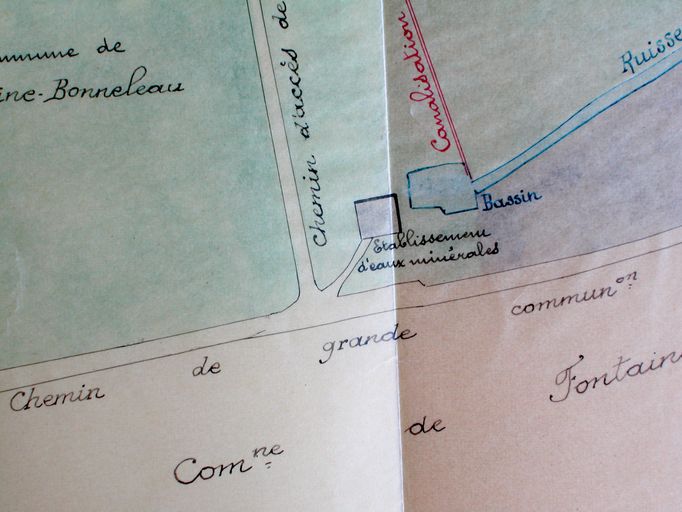 commune de
ine-Bonneleau
Chemin d'accès de
Canalisation
Ruisse
Bassin
Etablissement
d'eaux minérales
Chemin de grande commun.on
Com.ne de Fontain